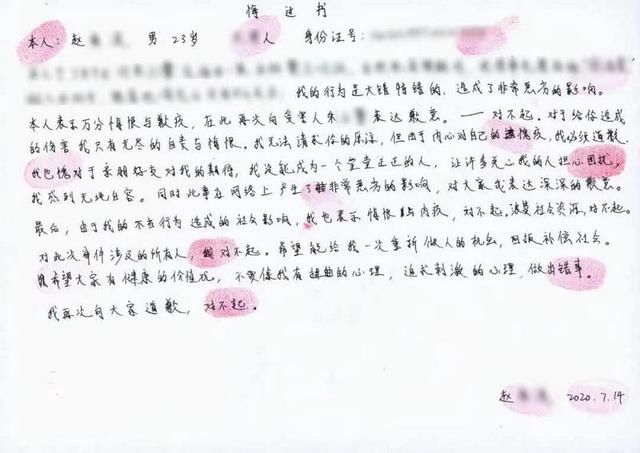 悔过书
本人：赵 男 23岁 人 身份证号：
我的行为是大错特错的，造成了非常恶劣的影响。
本人表示万分悔恨与歉疚，在此再次向受害人朱 表达歉意。——对不起。对于给你造成
的伤害我只有无尽的自责与悔恨。我无法请求你的原谅，但由于内心对自己的 愧疚，我必须道歉。
我也愧对于亲朋好友对我的期待，我没能成为一个堂堂正正的人，让许多关心我的人担心困扰，
我感到无地自容。同时此事在网络上产生了 非常恶劣的影响，对大家我表达深深的歉意。
最后，由于我的不当行为造成的社会影响，我也表示悔恨与内疚，对不起，浪费社会资源，对不起。
对此次事件涉及的所有人， 对不起。希望能给我一次重新做人的机会，回报补偿社会。
希望大家有健康的价值观，不要像我有扭曲的心理，追求刺激的心理，做出错事。
我再次向大家道歉，对不起。
赵 2020.7.14